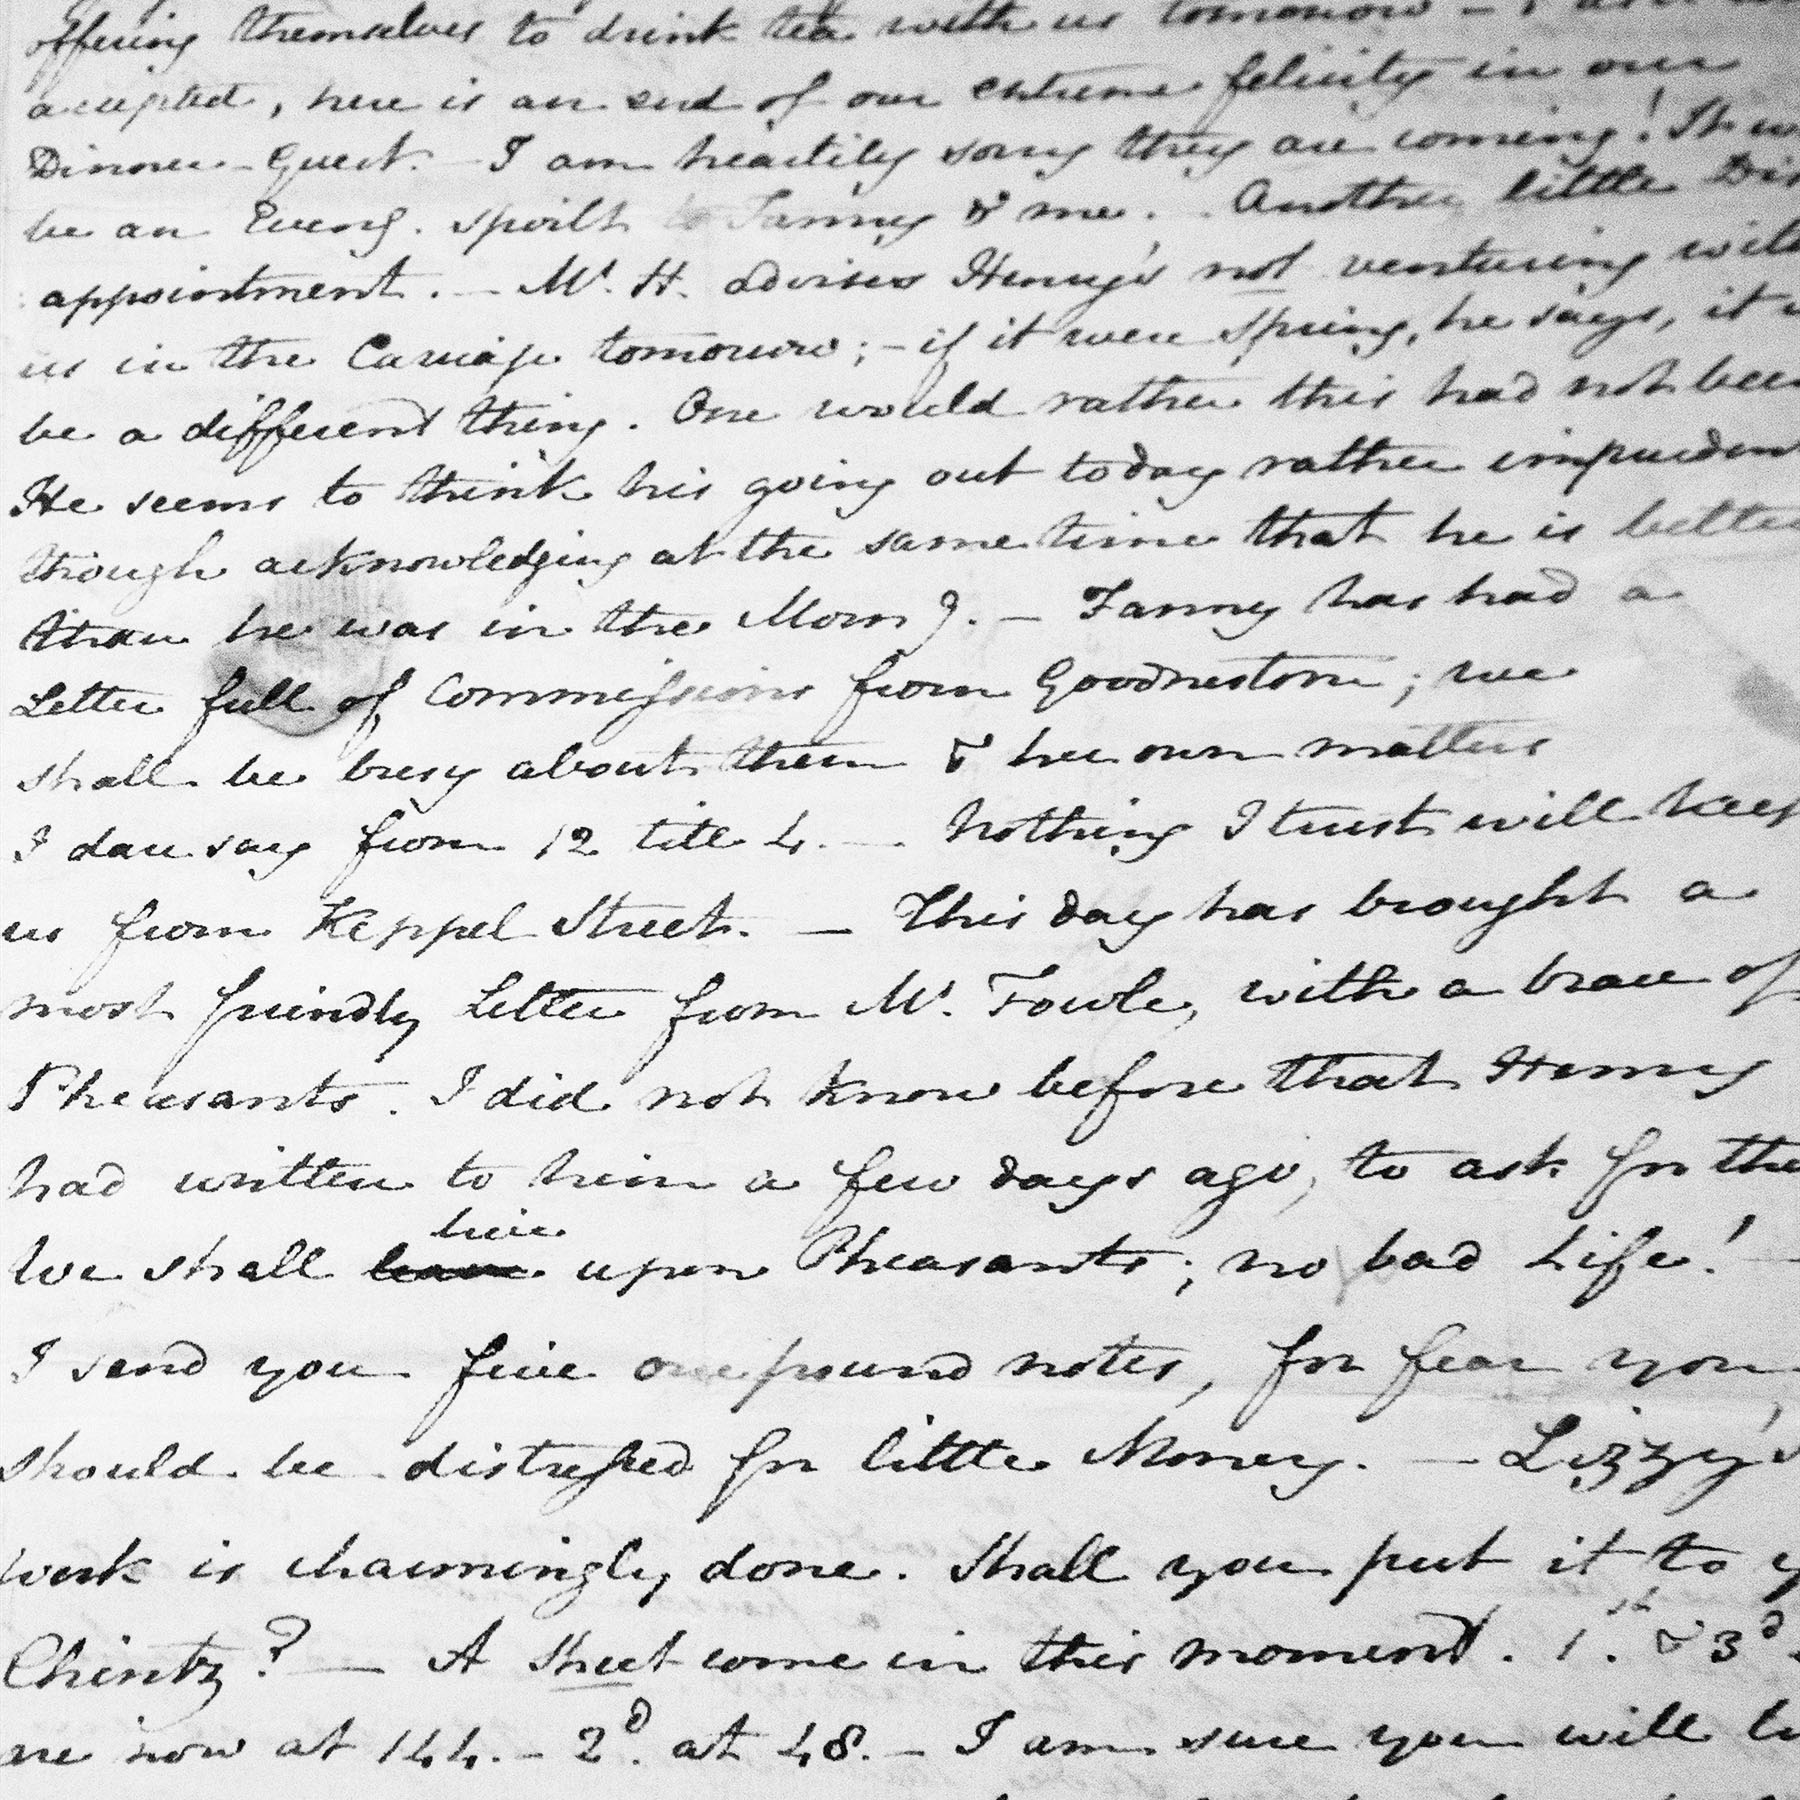 offering themselves to drink tea with us tomorrow -
accepted, here is an end of our extreme felicity in our
Dinner-Guest. - I am heartily sorry they are coming! It w
be an Eveng. spoilt to Fanny & me. - Another little Dis
appointment. - Mr. H. advises Henry's not venturing with
us in the Carriage tomorrow; - if it were Spring, he says, it w
be a different thing. One would rather this had not been
He seems to think his going out today rather imprudent
though acknowledging at the same time that he is better
than he was in the Morng. - Fanny has had a
Letter full of Commissions from Goodnestone; we
shall be busy about them & her own matters
I dare say from 12 till 4. - Nothing I trust will keep
us from Keppel Street. - This day has brought a
most friendly Letter from Mr. Fowle, with a brace of
Pheasants. I did not know before that Henry
had written to him a few days ago, to ask for the
live
We shall upon Pheasants; no bad Life! -
I send you five one pound notes, for fear you
should be distressed for little Money. - Lizzy's
work is charmingly done. Shall you put it to y
Chintz? - A Sheet come in this moment. 1st. & 3d.
are now at 144. - 2d. at 48. - I am sure you will